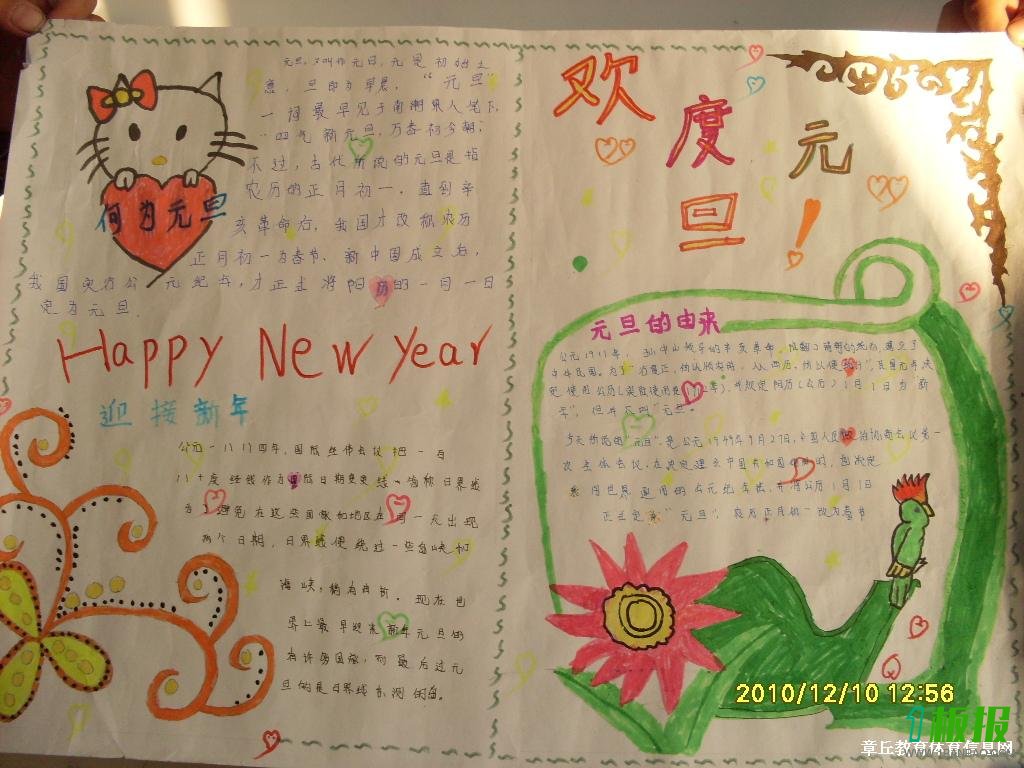 元旦,又叫作元日,元是初始之
意,旦即为早晨,“元旦”
一词最早见于南潮 人笔下,
四气新元旦,万寿初今朝;
不过,古代所说的元旦是指
农历的正月初一,直到辛
何为元旦
亥革命后,我国才改称农历
正月初一为春节、新中国成立后,
我国实行公元纪年,才正式将阳历的一月一日
定为元旦.
Happy New Year
迎接新年
公元一八八四年,国际 会议把一百
八十度经线作为国际日期变更线
为了避免在这些国家和地区在同一天出现
两个日期,日界线便绕过一些
海峡,稍为曲折。现在世
界上最早迎来新年元旦的
有许多国家,而最后过元
旦的是日界线东测的
欢度元旦!
元旦的由来
公元1911年,孙中山领导的辛亥革命,推翻了 的统治,建立了
中华民国。为了
定使用公历 并规定阳历(公历)1月1日为“新
年”,但并不叫“元旦”。
今天所说的“元旦”是公元1949年9月27日,中国人民政治协商会议第一
次全体会议,在决定建立中国 的同时,也决定
采用世界通用的公元纪年法,并将公历1月1日
正式定为“元旦”,农历正月初一改为春节
2010/12/10 12:56
板报
章丘教育体育信息网